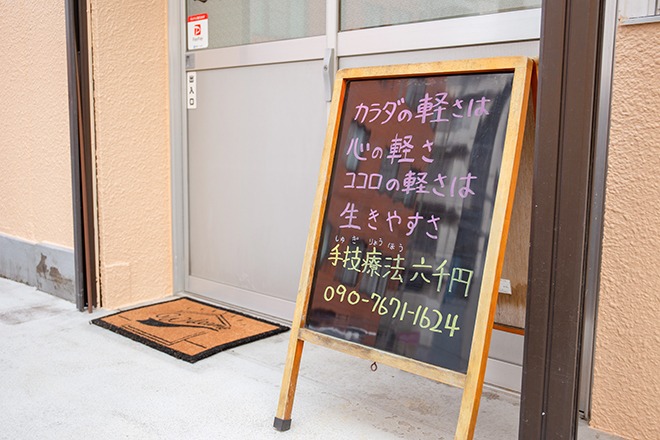 出入口
カラダの軽さは
心の軽さ
ココロの軽さは
生きやすさ
しゅ ぎ りょう ほう
手技療法 六千円
090-7671-1624